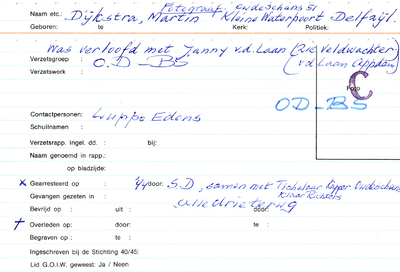 Fotograaf. Oudeschans 51
Naam etc.: Dijkstra, Martin Kleine Waterpoort Delfzijl.
Geboren: te Kerk: Politiek:
Was verloofd met Janny v.d. Laan (zie Veldwachter
Verzetsgroep : O.D - BS (v.d Laan Appdam)
Verzetswerk :
C
Foto
OD - BS
Contactpersonen: Luppo Edens
Schuilnaam :
Verzetsrapp. ingel. dd. : bij:
Naam genoemd in rapp.:
op bladzijde:
x Gearresteerd op : '44 door: S.D, samen met Tichelaar Kapper Oudeschans
Gevangen gezeten in : Klaas Richters
Bevrijd op : uit : door: alle drie terug
† Overleden op : door: te :
Begraven op : te :
Ingeschreven bij de Stichting 40/45:
Lid G.O.I.W. geweest: Ja / Neen